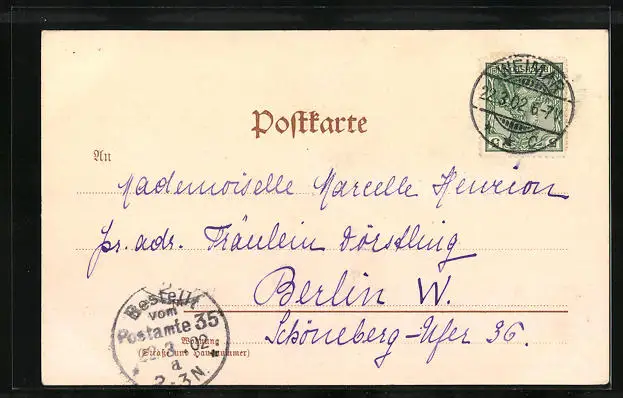 WEIMAR
22.3.02 6-7
Postkarte
An
Mademoiselle Marcelle Henrion
pr. adr. Fräulein Dörstling
Berlin W.
Schöneberg-Ufer 36.
Wohnung
(Straße und Hausnummer)
Bestellt
vom
Postamte 35
22.3.02
2-3N.